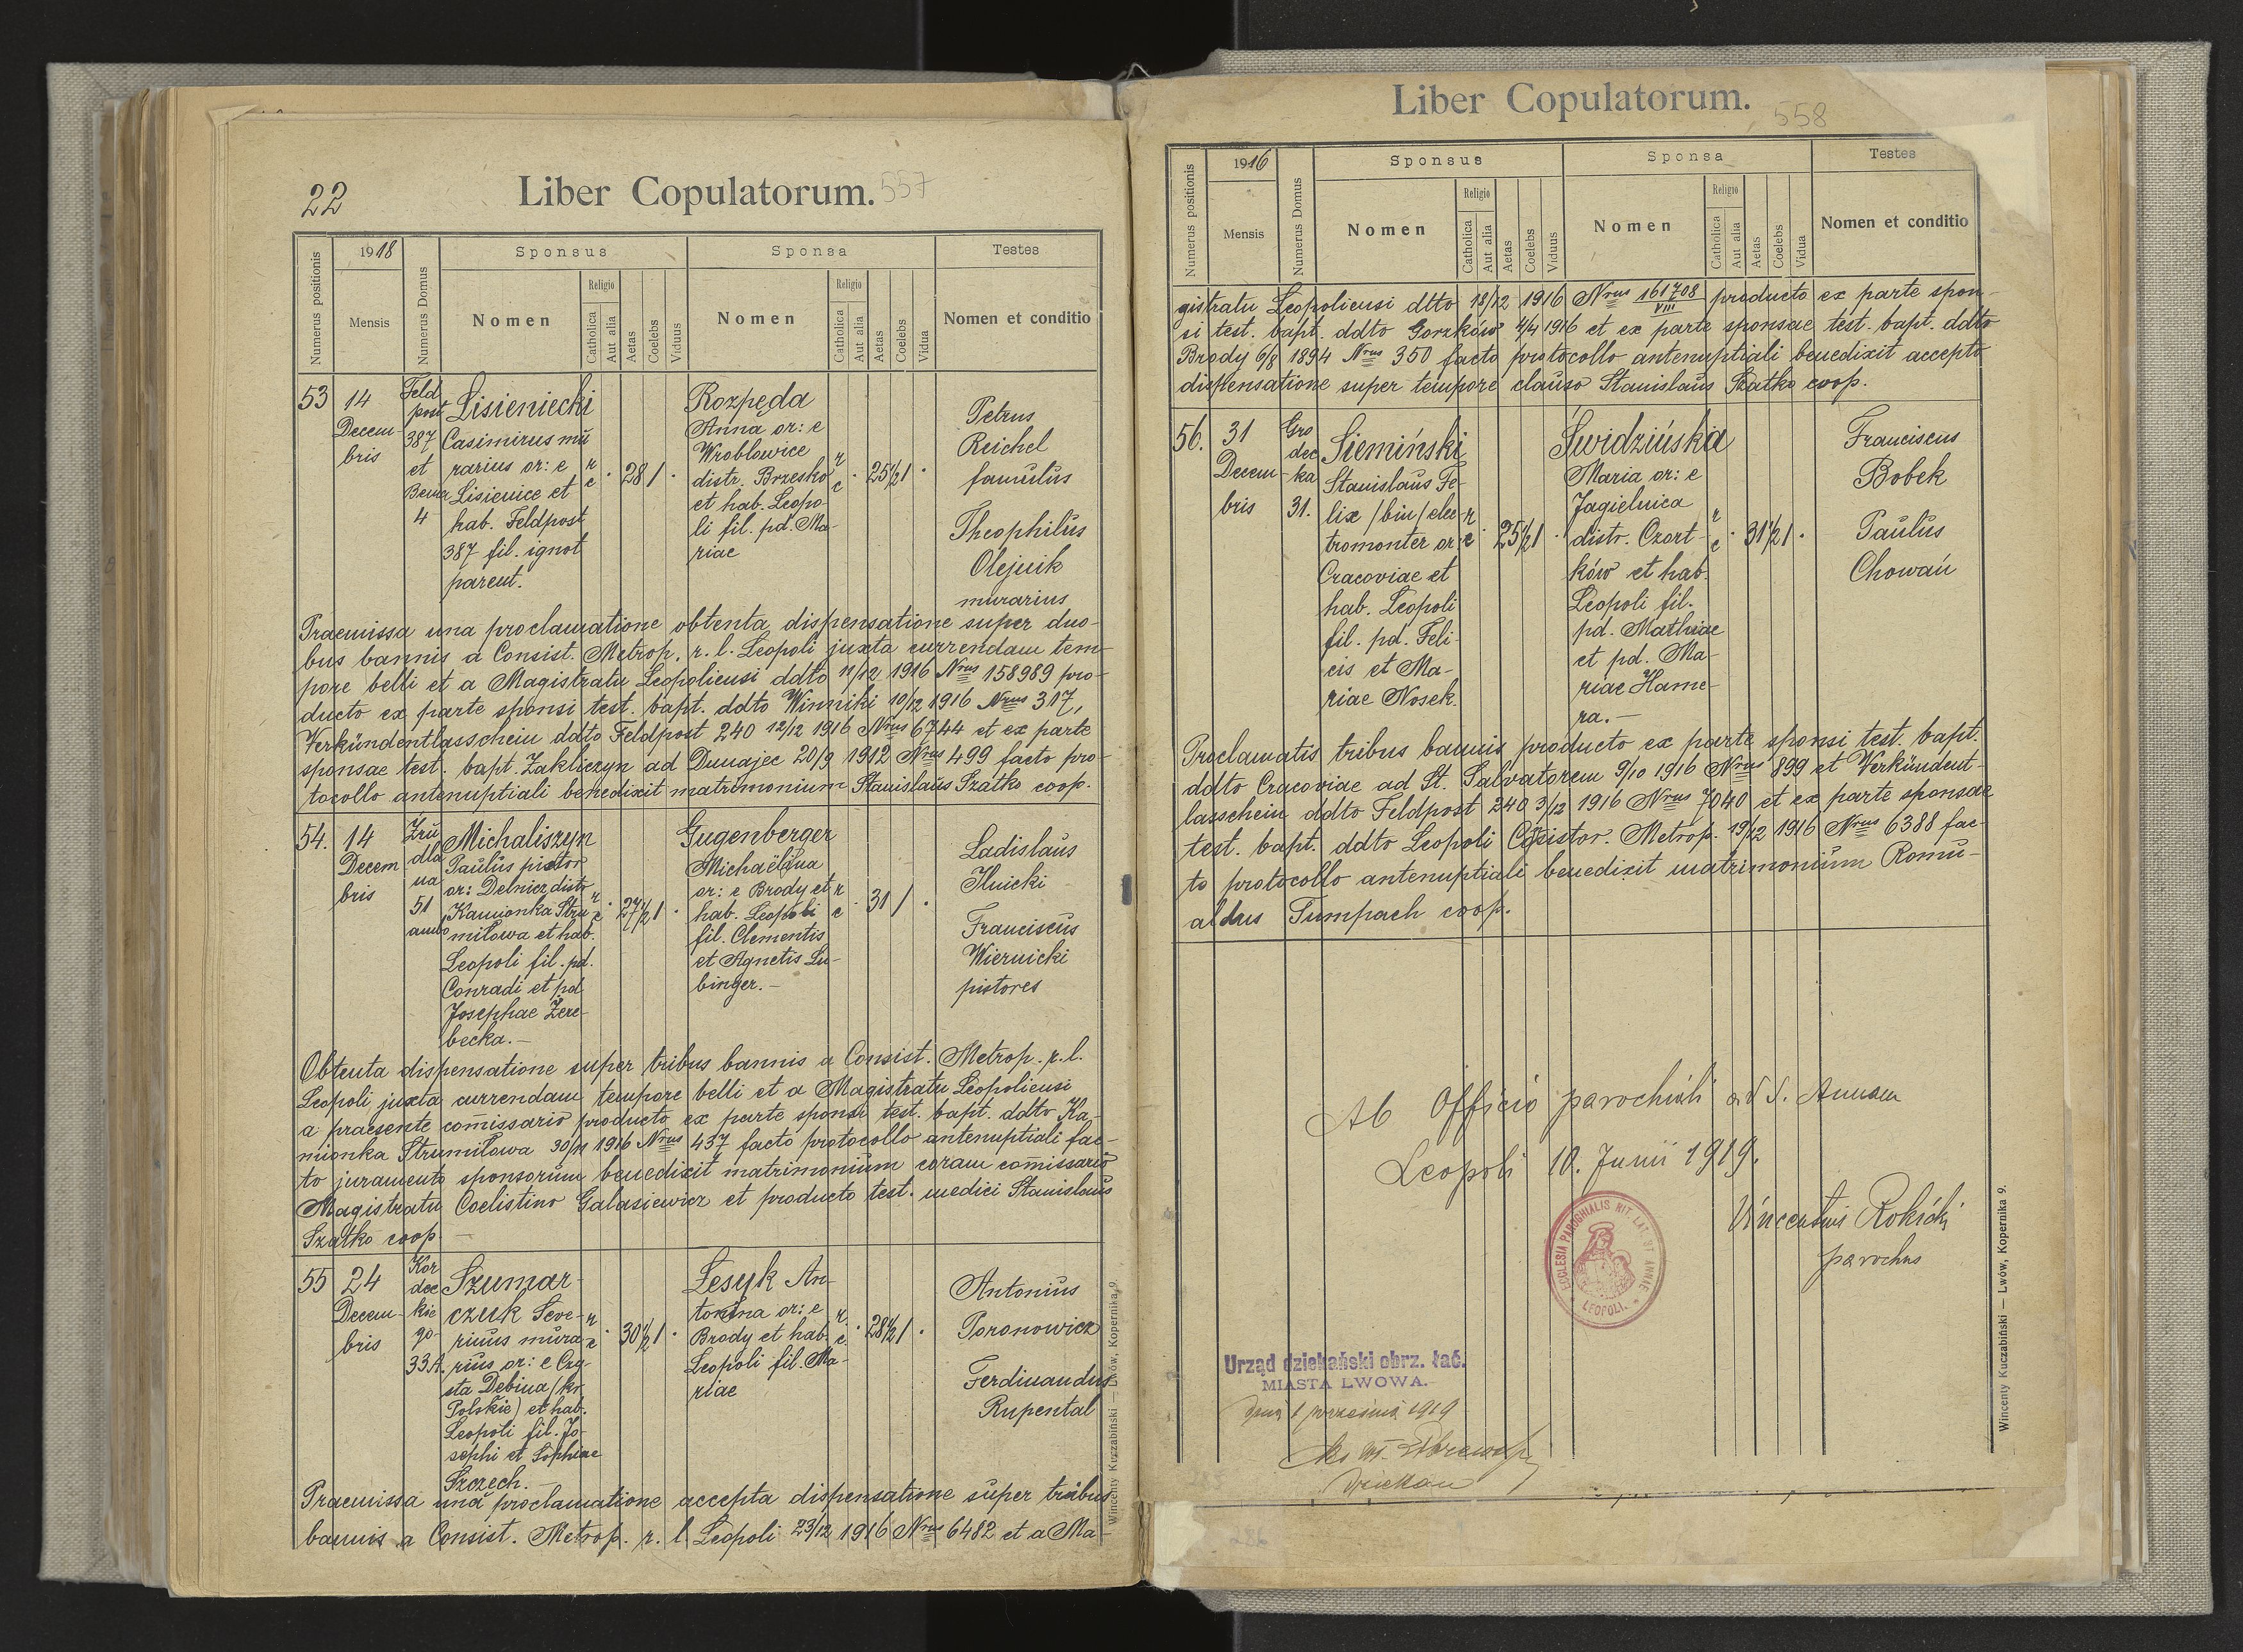 22
Liber Copulatorum. 557
Numerus positionis
1918
Mensis
Numerus Domus
Sponsus
Nomen
Religio
Catholica
Aut alia
Aetas
Coelebs
Viduus
Sponsa
Nomen
Religio
Catholica
Aut alia
Aetas
Coelebs
Vidua
Testes
Nomen et conditio
53
14
Decem-
bris
Feld
post
387
et
4
Lisieniecki
Casimirus mu
rarius or: e
Lisienice et
hab. Feldpost
387 fil. ignot
parent.
r
c
28 1
Rozpęda
Anna or: e
Wroblowice
distr. Brzesko
et hab. Leopo-
li fil. pd. Ma-
riae
r
c
25 1/2 1
Petrus
Reichel
famulus
Theophilus
Olejnik
murarius
Praemissa una proclamatione obtenta dispensatione super duo-
bus bannis a Consist. Metrop. r. l. Leopoli juxta currendam tem-
pore belli et a Magistratu Leopoliensi ddto 11/12 1916 Nrus 158989 pro-
ducto ex parte sponsi test. bapt. ddto Winniki 10/12 1916 Nrus 317,
Verkündentlasschein ddto Feldpost 240 12/12 1916 Nrus 6744 et ex parte
sponsae test. bapt. Zakliczyn ad Dunajec 20/9 1912 Nrus 499 facto pro-
tocollo antenuptiali benedixit matrimonium Stanislaus Szatko coop.
54.
14
Decem
bris
Zru
dla
na
51
ambo
Michaliszyn
Paulus pistor
or: Delnicz distr
Kamionka Stru
miłowa et hab.
Leopoli fil. pd.
Conradi et pd
Josephae Zere-
becka.-
r
c
27 1/2 1
Gugenberger
Michaëlina
or: e Brody et
hab. Leopoli
fil. Clementis
et Agnetis Lu-
binger.-
r
c
31 1
Ladislaus
Ilnicki
Franciscus
Wiernicki
pistores
Obtenta dispensatione super tribus bannis a Consist. Metrop. r. l.
Leopoli juxta currendam tempore belli et a Magistratu Leopoliensi
a praesente comissario producto ex parte sponsi test. bapt. ddto Ka-
mionka Strumiłowa 30/11 1916 Nrus 437 facto protocollo antenuptiali fac-
to juramento sponsorum benedixit matrimonium coram comissario
Magistratu Coelistino Galasiewicz et producto test. medici Stanislaus
Szatko coop.-
55
24
Decem-
bris
Kor
dec
kie
go-
33A.
Szumar-
czuk Seve-
rinus mura-
rius or: e Czę-
sta Debina (kr.
Polskie) et hab.
Leopoli fil. Jo-
sephi et Sophiae
Szczech.-
r
c
30 1/2 1
Lesyk An-
tonina or: e
Brody et hab.
Leopoli fil. Ma-
riae
r.
c.
28 1/2 1
Antonius
Poronowicz
Ferdinandus
Rupental
Praemissa una proclamatione accepta dispensatione super tribus
bannis a Consist. Metrop. r. l. Leopoli 23/12 1916 Nrus 6482 et a Ma-
Wincenty Kuczabiński — Lwów, Kopernika 9.
Liber Copulatorum. 558
Numerus positionis
1916
Mensis
Numerus Domus
Sponsus
Nomen
Religio
Catholica
Aut alia
Aetas
Coelebs
Viduus
Sponsa
Nomen
Religio
Catholica
Aut alia
Aetas
Coelebs
Vidua
Testes
Nomen et conditio
gistratu Leopoliensi dtto 18/12 1916 Nrus 161708/VIII producto ex parte spon-
si test. bapt. ddto Gorzków 4/4 1916 et ex parte sponsae test. bapt. ddto
Brody 6/8 1894 Nrus 350 facto protocollo antenuptiali benedixit accepto
dispensatione super tempore clauso Stanislaus Szatko coop.
56.
31
Decem-
bris
Gro
dec
ka
31.
Siemiński
Stanislaus Fe-
lix /bin/ elec-
tromonter or:
Cracoviae et
hab. Leopoli
fil. pd. Feli-
cis et Ma-
riae Nosek.
r
c
25 1/2 1
Świdzińska
Maria or: e
Jagielnica
distr. Czort-
ków et hab.
Leopoli fil.
pd. Mathiae
et pd. Ma-
riae Hame-
ra.-
r
c
31 1/2 1
Franciscus
Bobek
Paulus
Chowań
Proclamatis tribus bannis producto ex parte sponsi test. bapt.
ddto Cracoviae ad St. Salvatorem 9/10 1916 Nrus 899 et Verkündent-
lasschein ddto Feldpost 240 3/12 1916 Nrus 7040 et ex parte sponsae
test. bapt. ddto Leopoli Consistor. Metrop. 19/12 1916 Nrus 6388 fac-
to protocollo antenuptiali benedixit matrimonium Romu-
aldus Tumpach coop.
Ab Officio parochiali ad S. Annam
Leopoli 10. Junii 1919.
Vincentius Rokicki
parochus
ECCLESIA PAROCHIALIS RIT. LAT. ST. ANNAE
LEOPOLI.
Urząd dziekański obrz. łać.
MIASTA LWOWA.
dnia 1 września 1919
Dziekan
Wincenty Kuczabiński — Lwów, Kopernika 9.